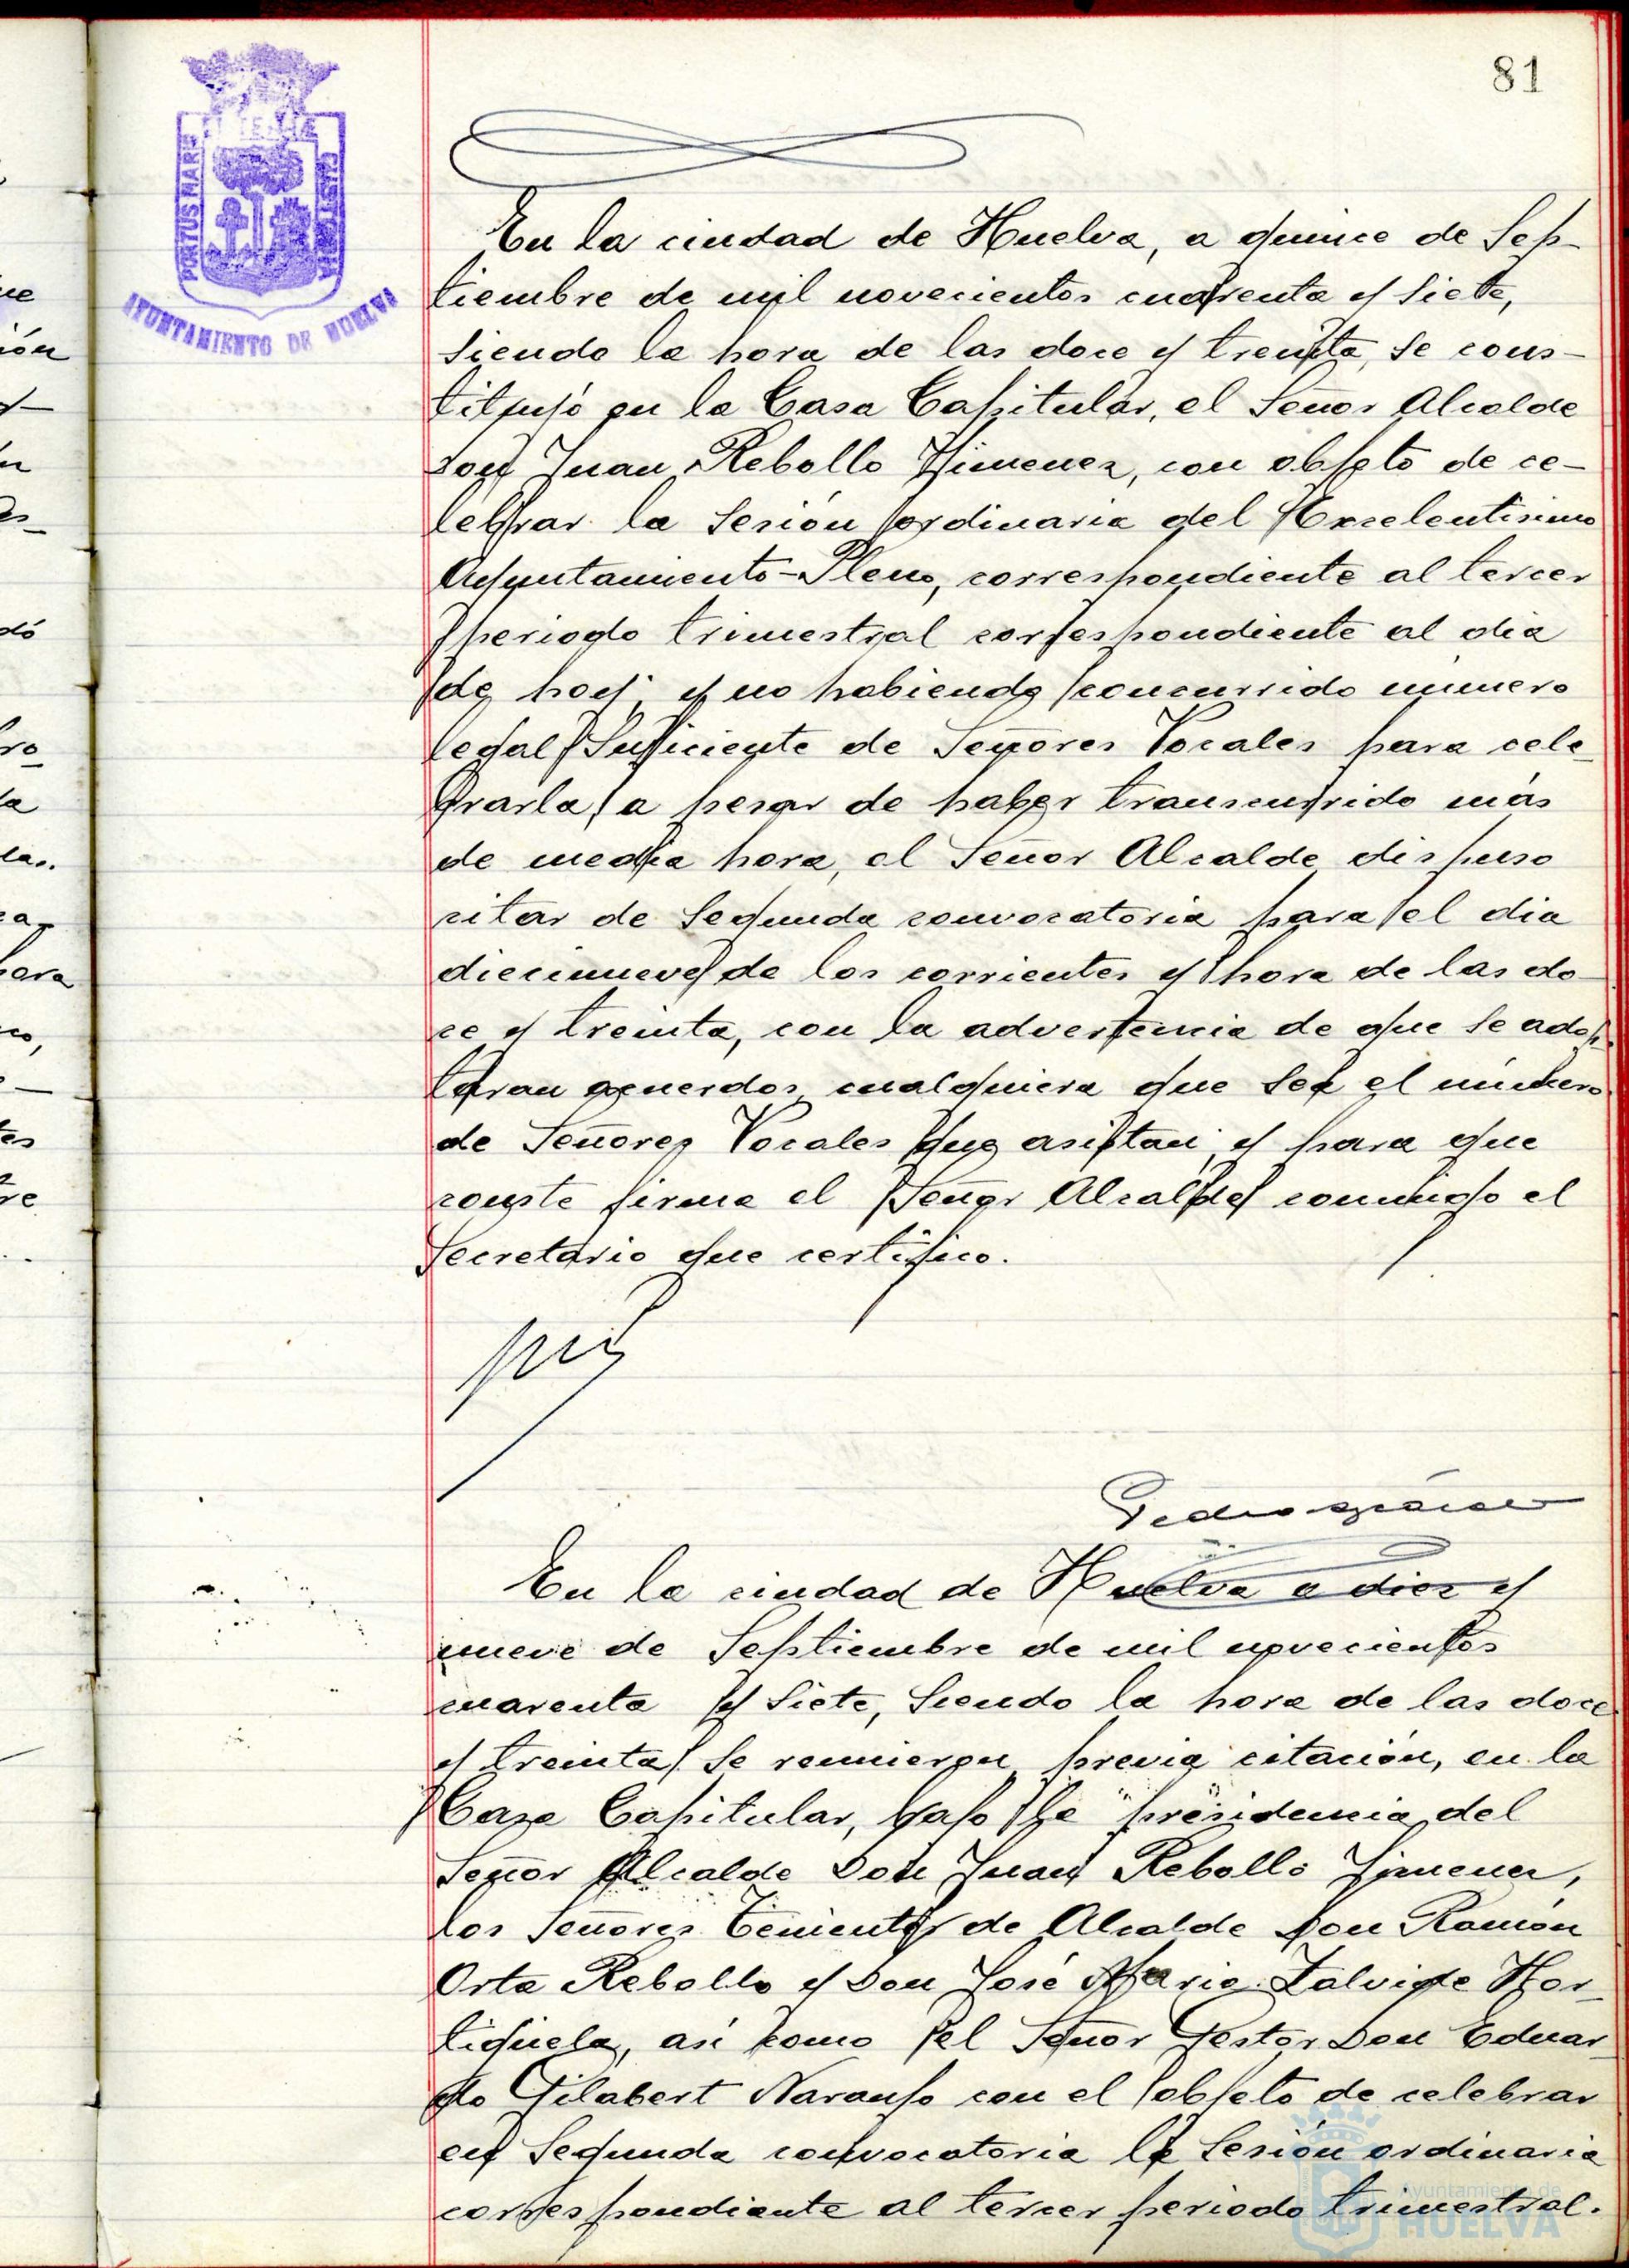 81
PORTUS MARIS
CUSTODIA
AYUNTAMIENTO DE HUELVA
En la ciudad de Huelva, a quince de Sep-
tiembre de mil novecientos cuarenta y siete,
siendo la hora de las doce y treinta, se cons-
tituyó en la Casa Capitular, el Señor Alcalde
Don Juan Rebollo Jimenez, con objeto de ce-
lebrar la sesión ordinaria del Excelentisimo
Ayuntamiento-Pleno, correspondiente al tercer
periodo trimestral correspondiente al dia
de hoy; y no habiendo concurrido número
legal suficiente de Señores Vocales para cele-
brarla, a pesar de haber transcurrido más
de media hora, el Señor Alcalde dispuso
citar de segunda convocatoria para el dia
diecinueve de los corrientes y hora de las do-
ce y treinta, con la advertencia de que se adop-
taran acuerdos cualquiera que sea el número
de Señores Vocales que asistan; y para que
conste firma el Señor Alcalde conmigo el
Secretario que certifico.
En la ciudad de Huelva a diez y
nueve de Septiembre de mil novecientos
cuarenta y siete, siendo la hora de las doce
y treinta, se reunieron previa citación, en la
Casa Capitular, bajo la presidencia del
Señor Alcalde Don Juan Rebollo Jimenez,
los Señores Tenientes de Alcalde Don Ramón
Orta Rebollo y Don José Maria Zalvide Hor-
tigüela, así como el Señor Gestor Don Eduar-
do Gilabert Naranjo con el objeto de celebrar
en segunda convocatoria la sesión ordinaria
correspondiente al tercer periodo trimestral.
Ayuntamiento de
HUELVA